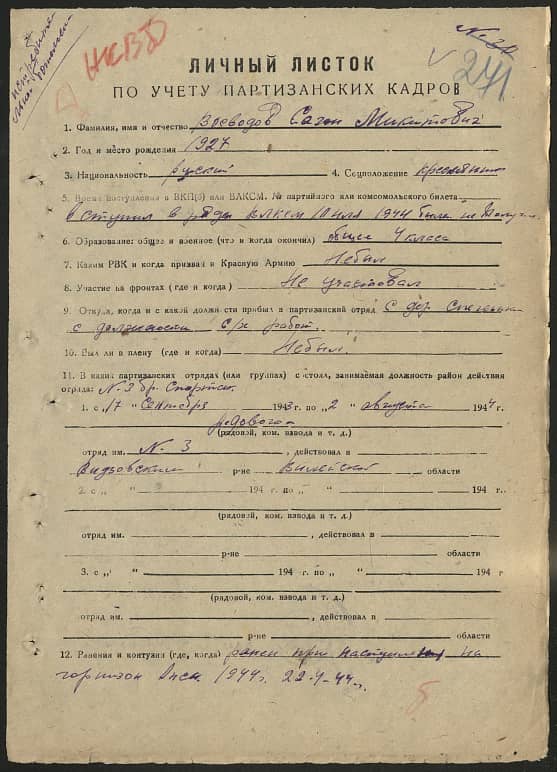 НКВД
№ 20
241
ЛИЧНЫЙ ЛИСТОК
ПО УЧЕТУ ПАРТИЗАНСКИХ КАДРОВ
1. Фамилия, имя и отчество Воеводов Микитович
2. Год и место рождения 1927
3. Национальность руский 4. Соцположение
5. Время вступления в ВКП(б) или ВЛКСМ. № партийного или комсомольского билета
вступил в ряды ВЛКСМ 1944 не
6. Образование: общее и военное (что и когда окончил) общее 4 класа
7. Каким РВК и когда призван в Красную Армию Небыл
8. Участие на фронтах (где и когда) Не участвовал
9. Откуда, когда и с какой должности прибыл в партизанский отряд с дер.
с должности с/х работ.
10. Был ли в плену (где и когда) Небыл.
11. В каких партизанских отрядах (или группах) состоял, занимаемая должность район действия
отряда: № 3 бр. Спартак.
1. с „17 “ Сентября 1943 г. по „2 “ августа 1944 г.
рядовой
(рядовой, ком. взвода и т. д.)
отряд им. № 3 , действовал в
Видзовский р-не Вилейской области
2. с „ “ 194 г. по „ “ 194 г.
(рядовой, ком. взвода и т. д.)
отряд им. , действовал в
р-не области
3. с „ “ 194 г. по „ “ 194 г
(рядовой, ком. взвода и т. д.)
отряд им. , действовал в
р-не области
12. Ранения и контузии (где, когда) ранен при на
гарнизон 1944 г. 44 г.